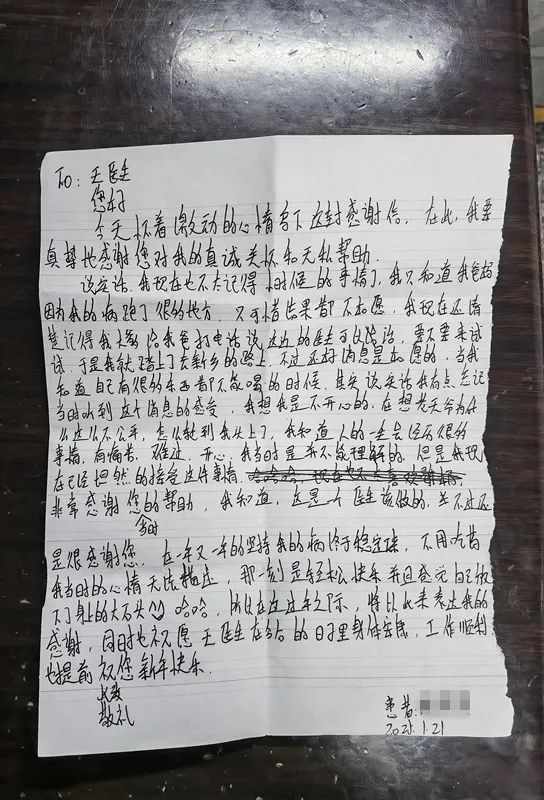 To: 王医生
您好
今天怀着激动的心情写下这封感谢信. 在此, 我要
真挚地感谢您对我的真诚关怀和无私帮助.
说实话, 我现在也不太记得小时候的事情了, 我只知道我爸妈
因为我的病跑了很多地方, 只可惜结果都不如愿, 我现在还清
楚记得我大叔给我爸打电话说这边的医生可以治, 要不要来试
试, 于是我就踏上了去新乡的路上, 不过还好消息是如愿的, 当我
知道自己有很多东西都不能喝的时候, 其实说实话我有点忘记
当时听到这个消息的感受, 我想我是不开心的, 在想老天爷为什
么这么不公平, 怎么轮到我头上了, 我知道人的一生会经历很多
事情, 有痛苦, 难过, 开心, 我当时是并不能理解的, 但是我现
在已经坦然的接受这件事情.
非常感谢您的帮助, 我知道, 这是一个医生该做的, 并不过还
是很感谢您, 在一年又一年的坚持我的病终于稳定球, 不用吃药
当时
我当时的心情无法描述, 那一刻是轻松快乐并且感觉自己放
下了身上的大石头 哈哈, 所以在这过年之际, 特以此来表达我的
感谢, 同时也祝愿王医生在今后的日子里身体安康, 工作顺利.
也提前祝您新年快乐.
此致
敬礼
患者:
2025.1.21